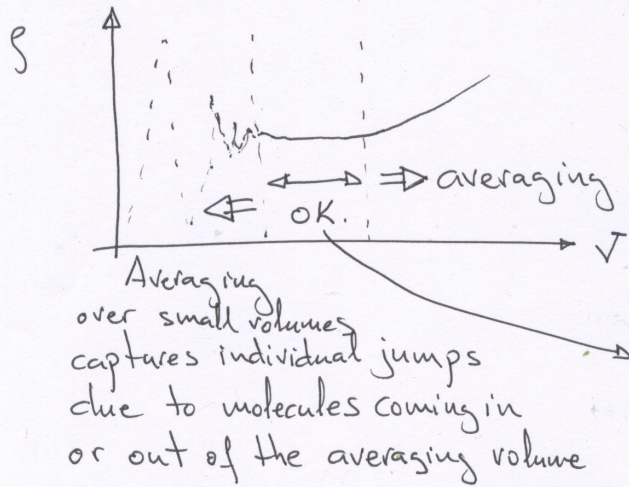 ρ
⇒ averaging
⇐ OK.
V
Averaging
over small volumes
captures individual jumps
due to molecules coming in
or out of the averaging volume